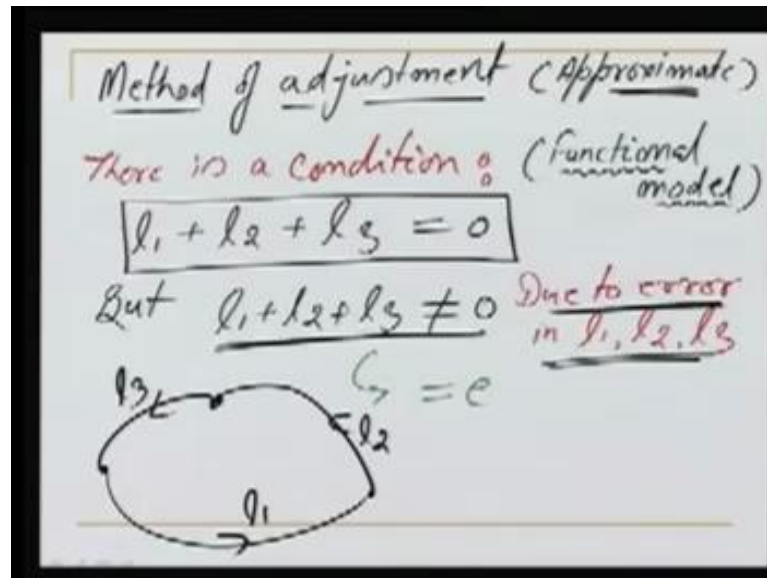 Method of adjustment (Approximate)
There is a condition: (functional
model)
l1 + l2 + l3 = 0
But l1+l2+l3 ≠ 0 Due to error
in l1, l2, l3
= e
l3
l2
l1